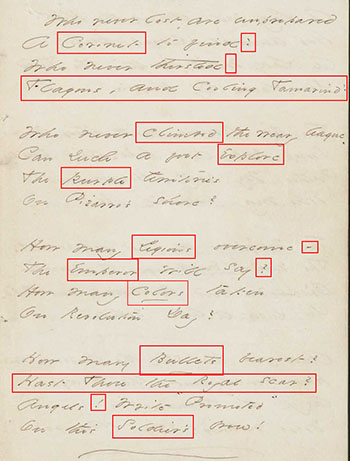 Who never lost are unprepared
A Coronet to find!
Who never thirsted
Flagons, and Cooling Tamarind!
Who never Climbed the weary league
Can such a foot Explore
The Purple territories
On Pizarro's shore?
How many Legions overcome -
The Emperor will say?
How many Colors taken
On Revolution Day?
How many Bullets bearest?
Hast Thou the Royal scar?
Angels! Write "Promoted"
On this Soldier's brow!